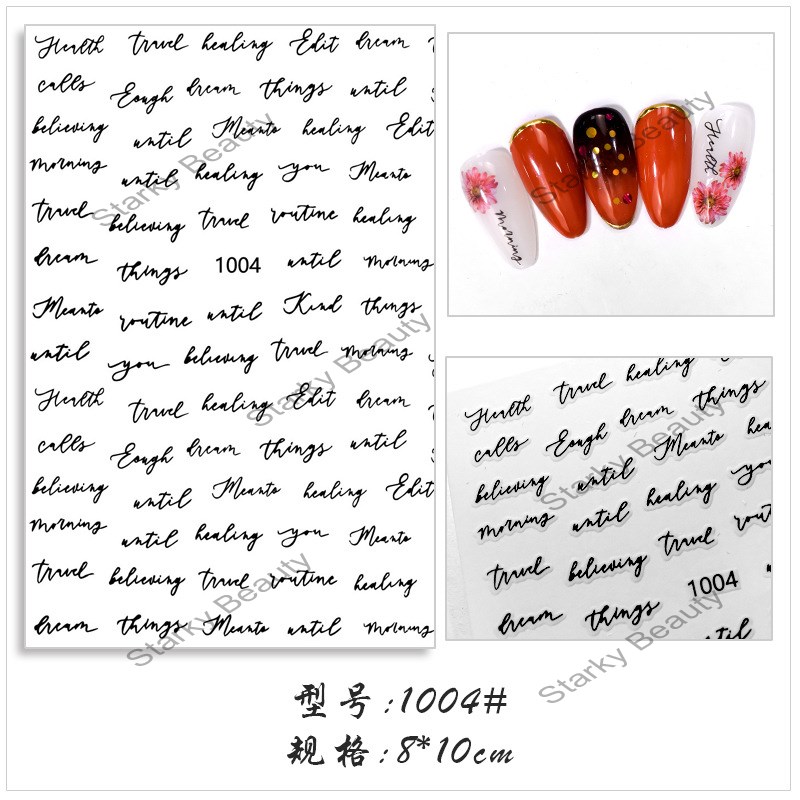 Health travel healing Edit dream
calls Eough dream things until
believing until Meanto healing Edit
morning until healing you Meanto
travel believing travel routine healing
dream things 1004 until morning
Meanto routine until Kind things
until you believing travel morning
Health travel healing Edit dream
calls Eough dream things until
believing until Meanto healing Edit
morning until healing you Meanto
travel believing travel routine healing
dream things Meanto until morning
morning
Health
Health travel healing
calls Eough dream things
believing until Meanto hea
morning until healing you
travel believing travel rout
dream things 1004
til
Starky Beauty
Starky Beauty
Starky Beauty
Starky Beauty
Starky Beauty
Starky Beauty
型号:1004#
规格:8*10cm